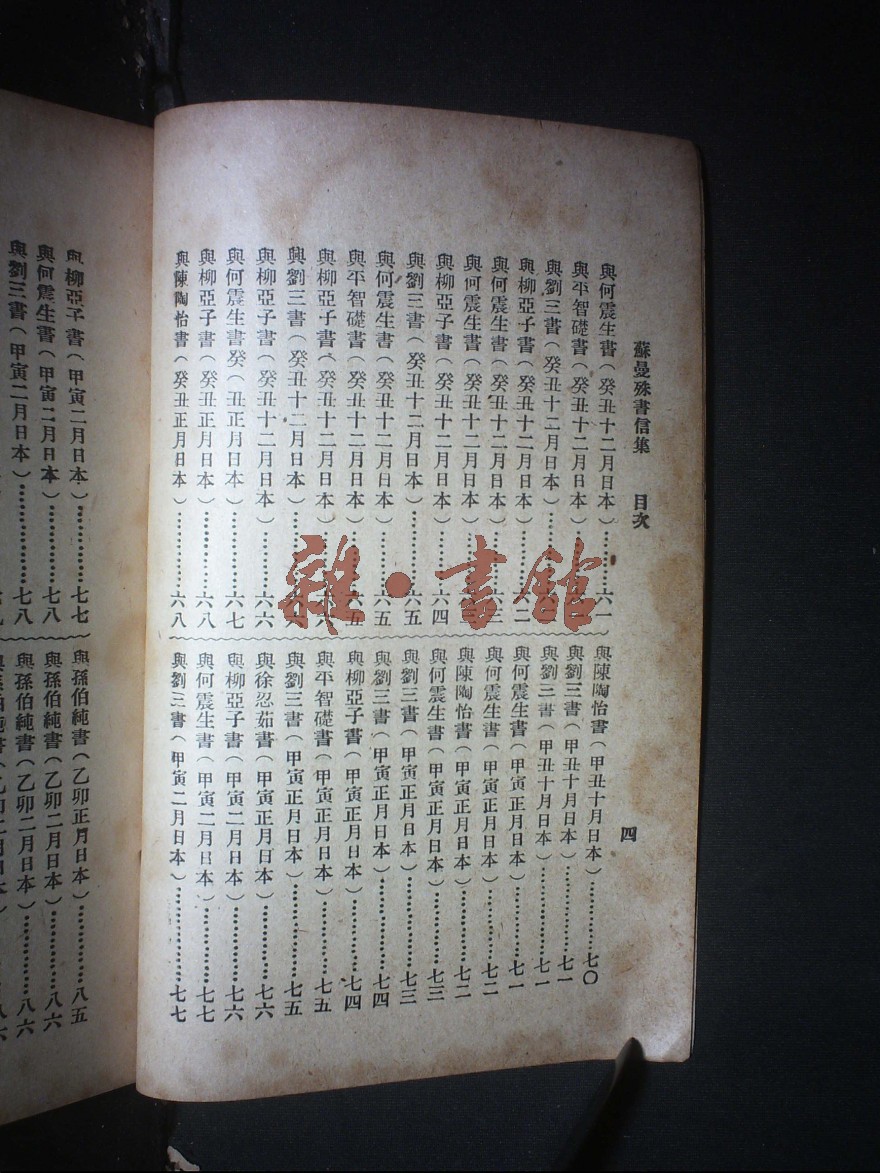 蘇曼殊書信集　目次　四
與何震生書(癸丑十二月日本)…………六一
與平智礎書(癸丑十二月日本)
與劉三書(癸丑十二月日本)
與柳亞子書(癸丑十二月日本)…………六二
與何震生書(癸丑十二月日本)
與何震生書(癸丑十二月日本)
與柳亞子書(癸丑十二月日本)…………六四
與劉三書(癸丑十二月日本)…………六五
與何震生書(癸丑十二月日本)…………六五
與平智礎書(癸丑十二月日本)…………六五
與柳亞子書(癸丑十二月日本)
與劉三書(癸丑十二月日本)
與柳亞子書(癸丑十二月日本)…………六六
與何震生書癸(丑正月日本)…………六七
與柳亞子書(癸丑正月日本)…………六八
與陳陶怡書(癸丑正月日本)…………六八
與陳陶怡書(甲丑十月日本)…………七〇
與劉三書(甲丑十月日本)…………七一
與劉三書(甲丑十月日本)…………七一
與何震生書(甲寅正月日本)…………七一
與何震生書(甲寅正月日本)…………七二
與陳陶怡書(甲寅正月日本)…………七二
與何震生書(甲寅正月日本)…………七三
與劉三書(甲寅正月日本)…………七三
與劉三書(甲寅正月日本)…………七四
與柳亞子書(甲寅正月日本)…………七四
與平智礎書(甲寅正月日本)…………七五
與劉三書(甲寅正月日本)…………七五
與徐忍茹書(甲寅正月日本)…………七六
與柳亞子書(甲寅二月日本)…………七六
與何震生書(甲寅二月日本)…………七七
與劉三書(甲寅二月日本)…………七七
與柳亞子書(甲寅二月日本)…………七七
與何震生書(甲寅二月日本)…………七八
與劉三書(甲寅二月日本)…………七八
與孫伯純書(乙卯正月日本)…………八五
與孫伯純書(乙卯二月日本)…………八六
與孫伯純書(乙卯二月日本)…………八六
雜·書館